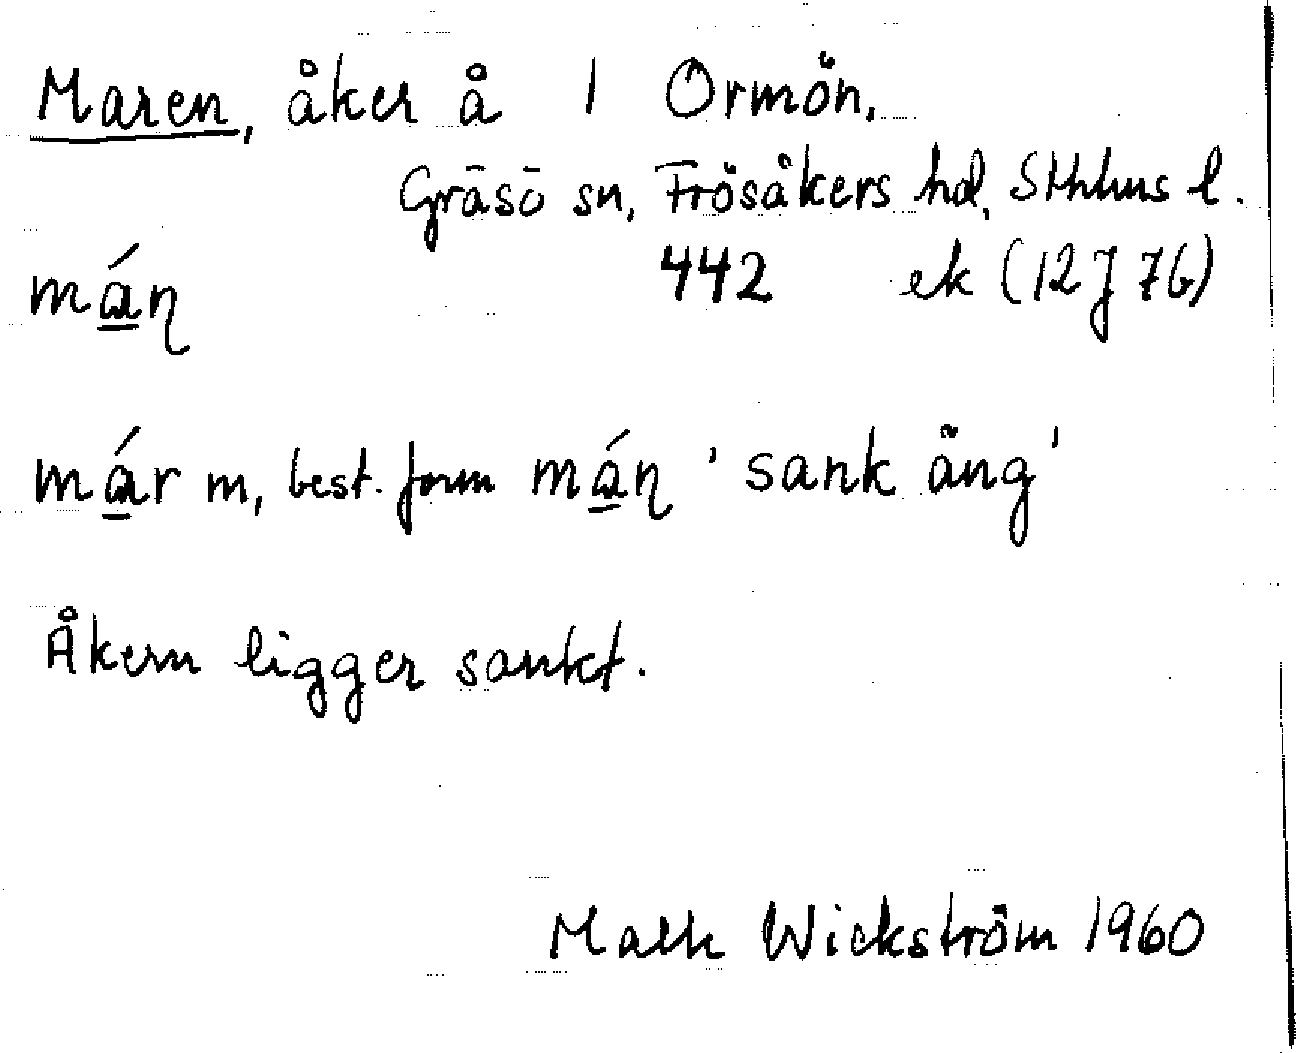 Maren, åker å 1 Ormön.
Gräsö sn, Frösåkers hd, Sthlms l.
má̱ꞃ 442 ek (12J76)
má̱r m, best. form má̱ꞃ 'sank äng'
Åkern ligger sankt.
Wickström 1960